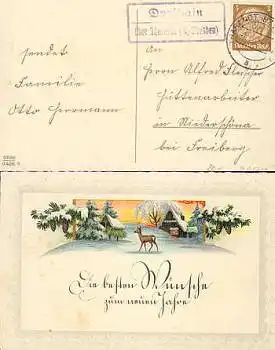 Opelhain
über Elsterwerda
sendet
Familie
Otto Herrmann
An
Herrn Alfred Fleischer
Hüttenarbeiter
in Niederschöna
bei Freiberg
Deutsches Reich
Die besten Wünsche
zum neuen Jahre